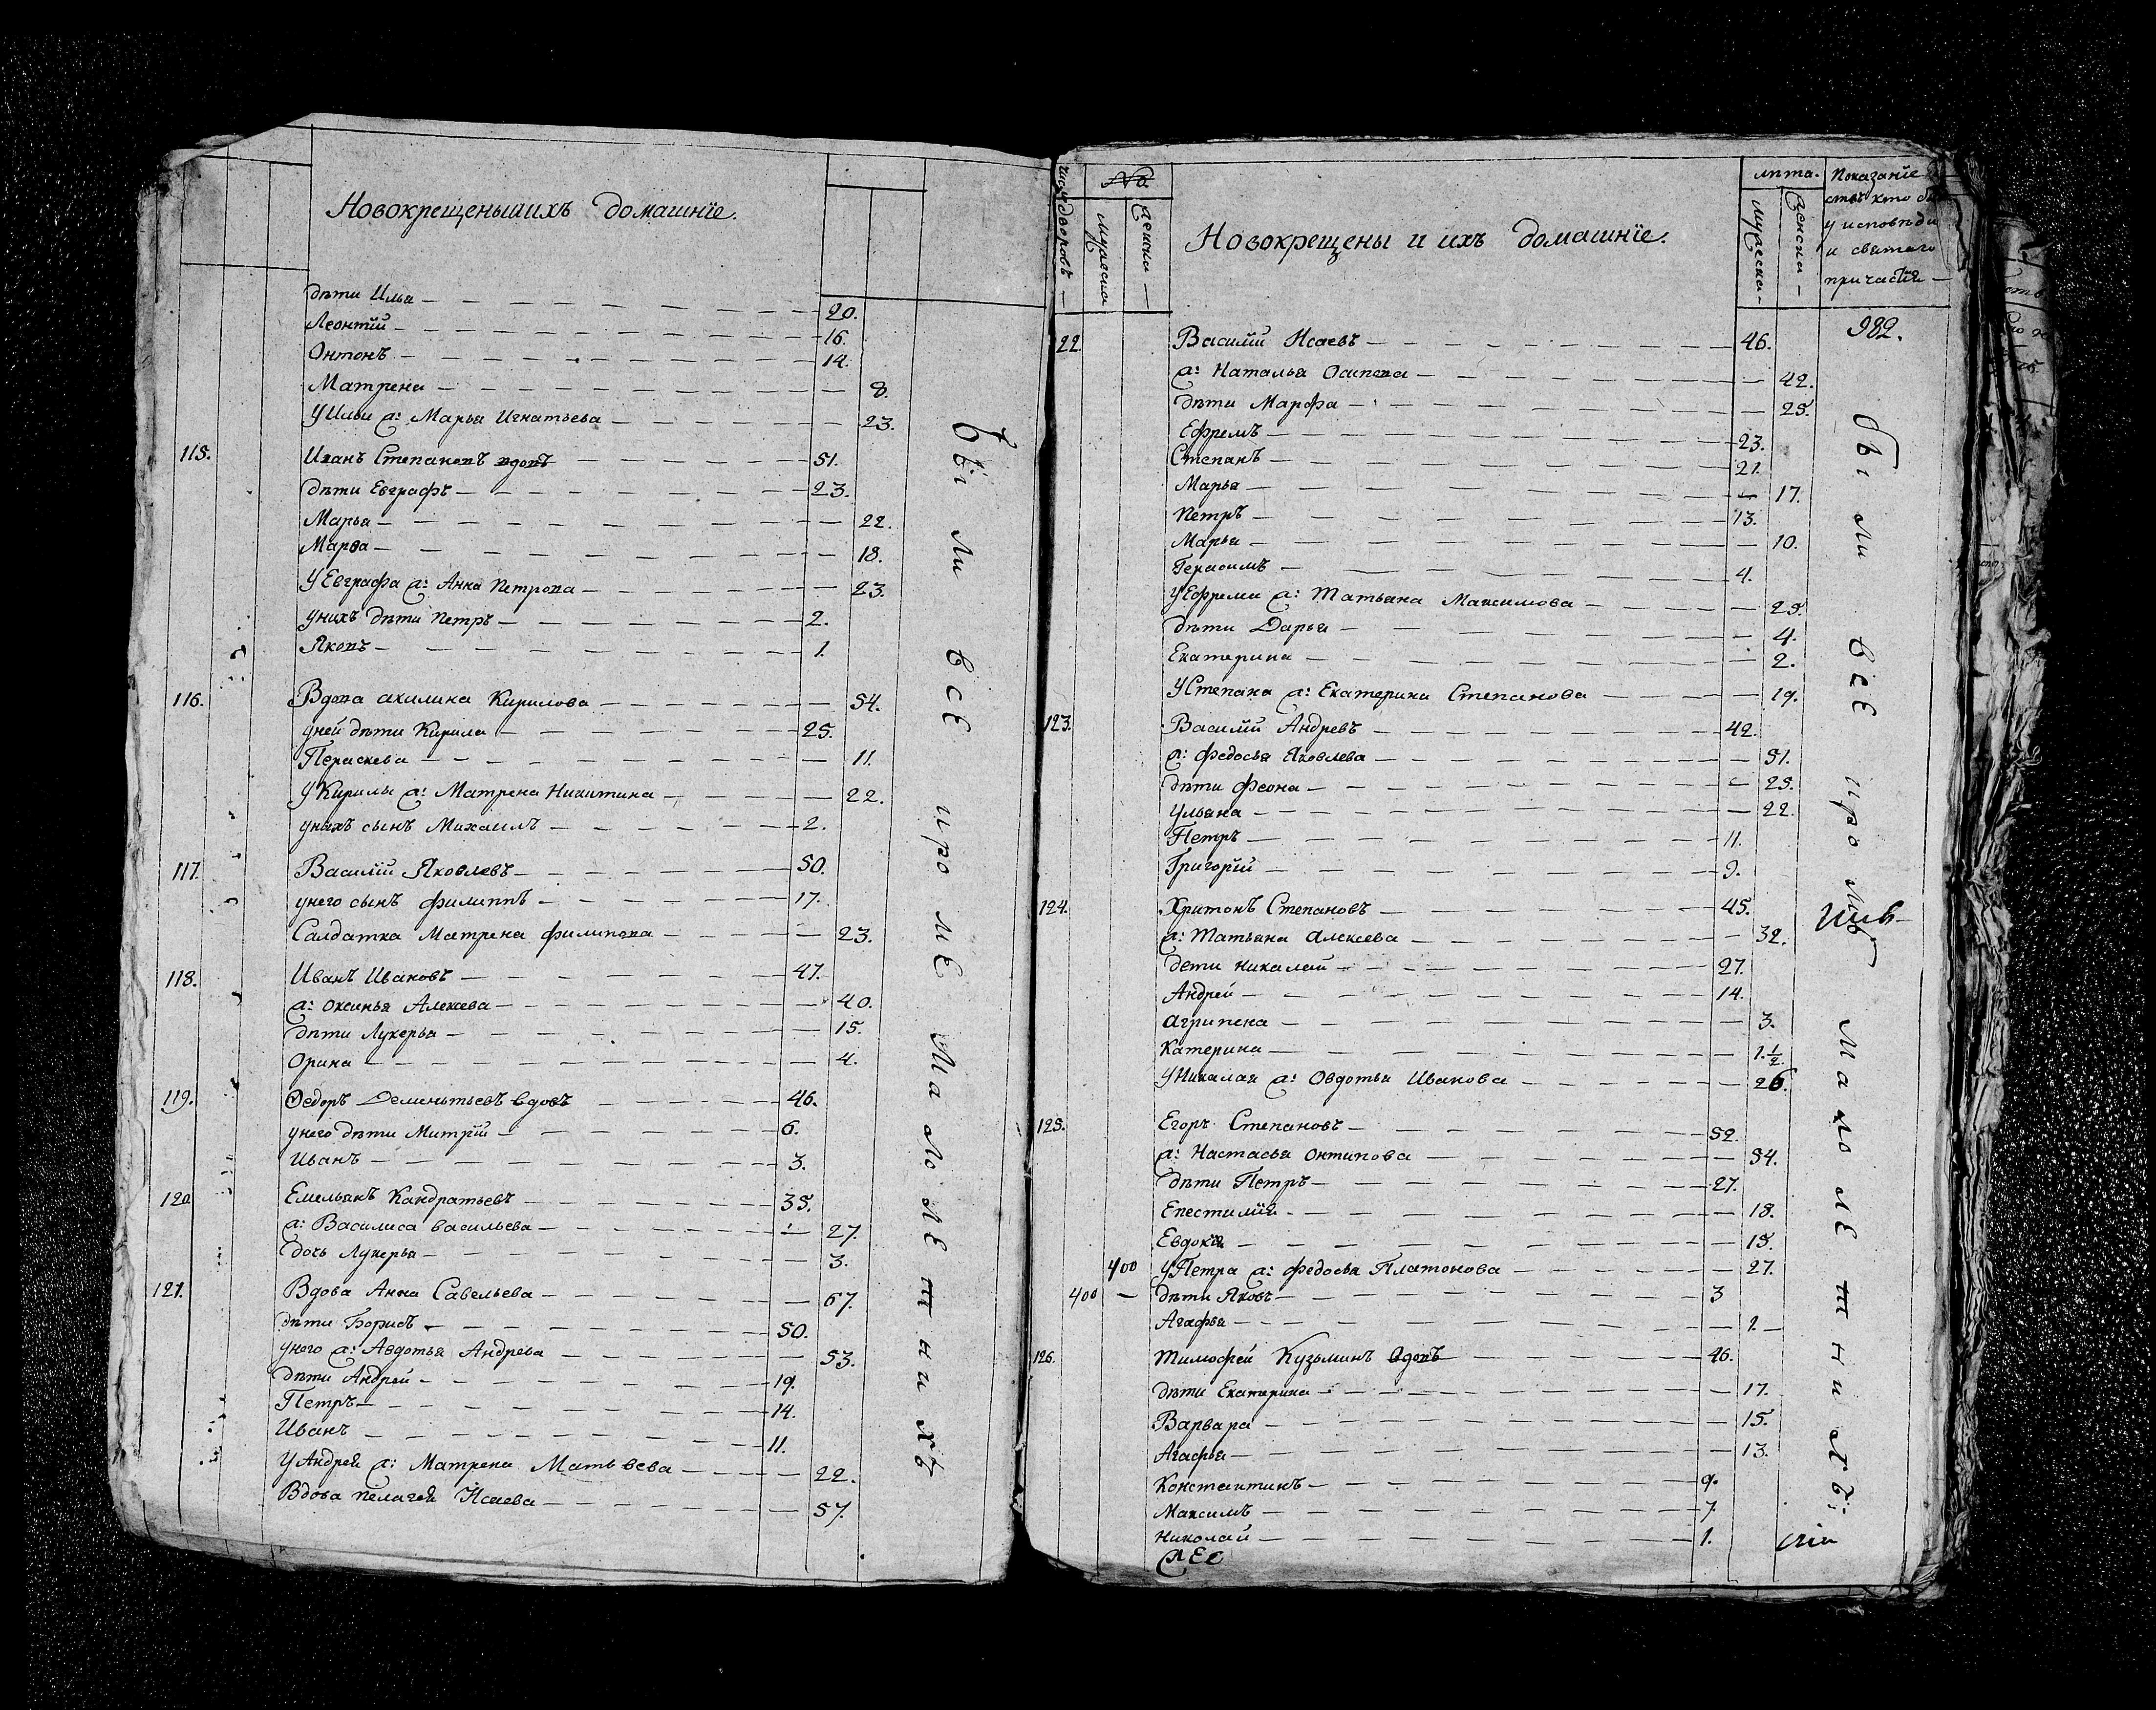 Новокрещеныиихъ домашнїе.
дѣти Илья — 20.
Леонтїй — 16.
Онтонъ — 14.
Матрена — 8.
У Ильи ж: Марья Игнатьева — 23.
115. Иванъ Степановъ вдовъ — 51.
дѣти Евграфъ — 23.
Марья — 22.
Марѳа — 18.
У Евграфа ж: Анна Петрова — 23.
унихъ дѣти Петръ — 2.
Яковъ — 1.
116. Вдова акилина Кирилова — 54.
уней дѣти Кирила — 25.
Параскева — 11.
У Кирилы ж: Матрена Никитина — 22.
унихъ сынъ Михаилъ — 2.
117. Василїй Яковлевъ — 50.
унего сынъ филиппъ — 17.
Салдатка Матрена филипова — 23.
118. Иванъ Ивановъ — 47.
ж: Оксинья Алексева — 40.
дѣти Лукерья — 15.
Орина — 4.
119. Ѳедоръ Деменьтьевъ вдовъ — 46.
унего дѣти Митрїй — 6.
Иванъ — 3.
120 Емельянъ Кандратьевъ — 35.
ж: Василиса васильева — 27.
дочь Лукерья — 3.
121. Вдова Анна Савельева — 67.
дѣти Борисъ — 50.
унего ж: Авдотья Андрева — 53.
дѣти Андрей — 19.
Петръ — 14.
Иванъ — 11.
У Андрея ж: Матрена Матьвева — 22.
Вдова пелагея Исаева — 57.
бы ли всѣ кромѣ Малолѣтнихъ
число дворовъ
No.
мужеска
женска
Новокрещены и ихъ домашнїе.
лѣта.
мужеска
женска
Показанїе
кто
у исповѣди
и святаго
причастїя
982.
22. Василїй Исаевъ — 46.
ж: Наталья Осипова — 42.
дѣти Марфа — 25.
Ефремъ — 23.
Степанъ — 21.
Марья — 17.
Петръ — 13.
Марья — 10.
Герасимъ — 4.
У Ефрема ж: Татьяна Максимова — 25.
дѣти Дарья — 4.
Екатерина — 2.
У Степана ж: Екатерина Степанова — 19.
123. Василїй Андревъ — 42.
ж: федосья Яковлева — 51.
дѣти феона — 25.
Ульяна — 22.
Петръ — 11.
Григорїй — 9.
124. Хритонъ Степановъ — 45.
ж: Татьяна Алексева — 32.
дети Николай — 27.
Андрей — 14.
Агрипена — 3.
Катерина — 1.½
У Николая ж: Овдотья Иванова — 26.
125. Егоръ Степановъ — 52.
ж: Настасья Онтипова — 54.
дѣти Петръ — 27.
Епестимїя — 18.
Евдокїя — 15.
400 У Петра ж: федосья Платонова — 27.
400 — дѣти Яковъ — 3
Агафья — 1.
126. Тимофей Кузьминъ вдовъ — 46.
дѣти Екатерина — 17.
Варвара — 15.
Агафья — 13.
Константинъ — 9.
Максимъ — 7.
Николай — 1.
бы ли всѣ кромѣ Малолѣтнихъ